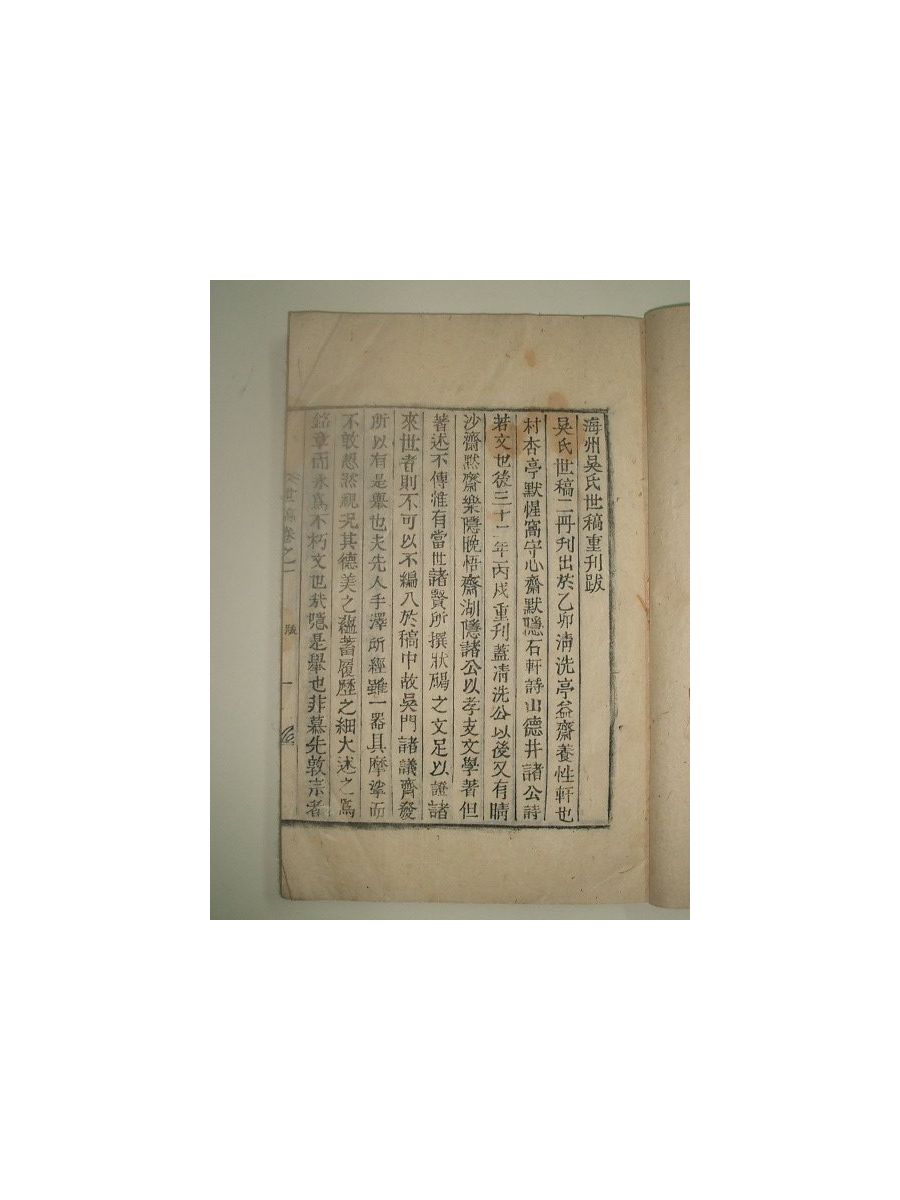 海州吳氏世稿重刊跋
吳氏世稿二冊刊出於乙卯淸洗亭益齋養性軒也
村杏亭默惺窩守心齋默隱石軒詩山德井諸公詩
若文也後三十二年丙戌重刊蓋淸洗公以後又有晴
沙齋默齋樂隱晩悟齋湖隱諸公以孝友文學著但
著述不傳淮有當世諸賢所撰狀碣之文足以證諸
來世者則不可以不編入於稿中故吳門諸議齊發
所以有是擧也夫先人手澤所經雖一器具摩挲而
不敢恝然視况其德美之蘊蓄履歷之細大述之爲
銘章而永爲不朽文也哉噫是擧也非慕先敦宗者
世稿卷之二 跋 一